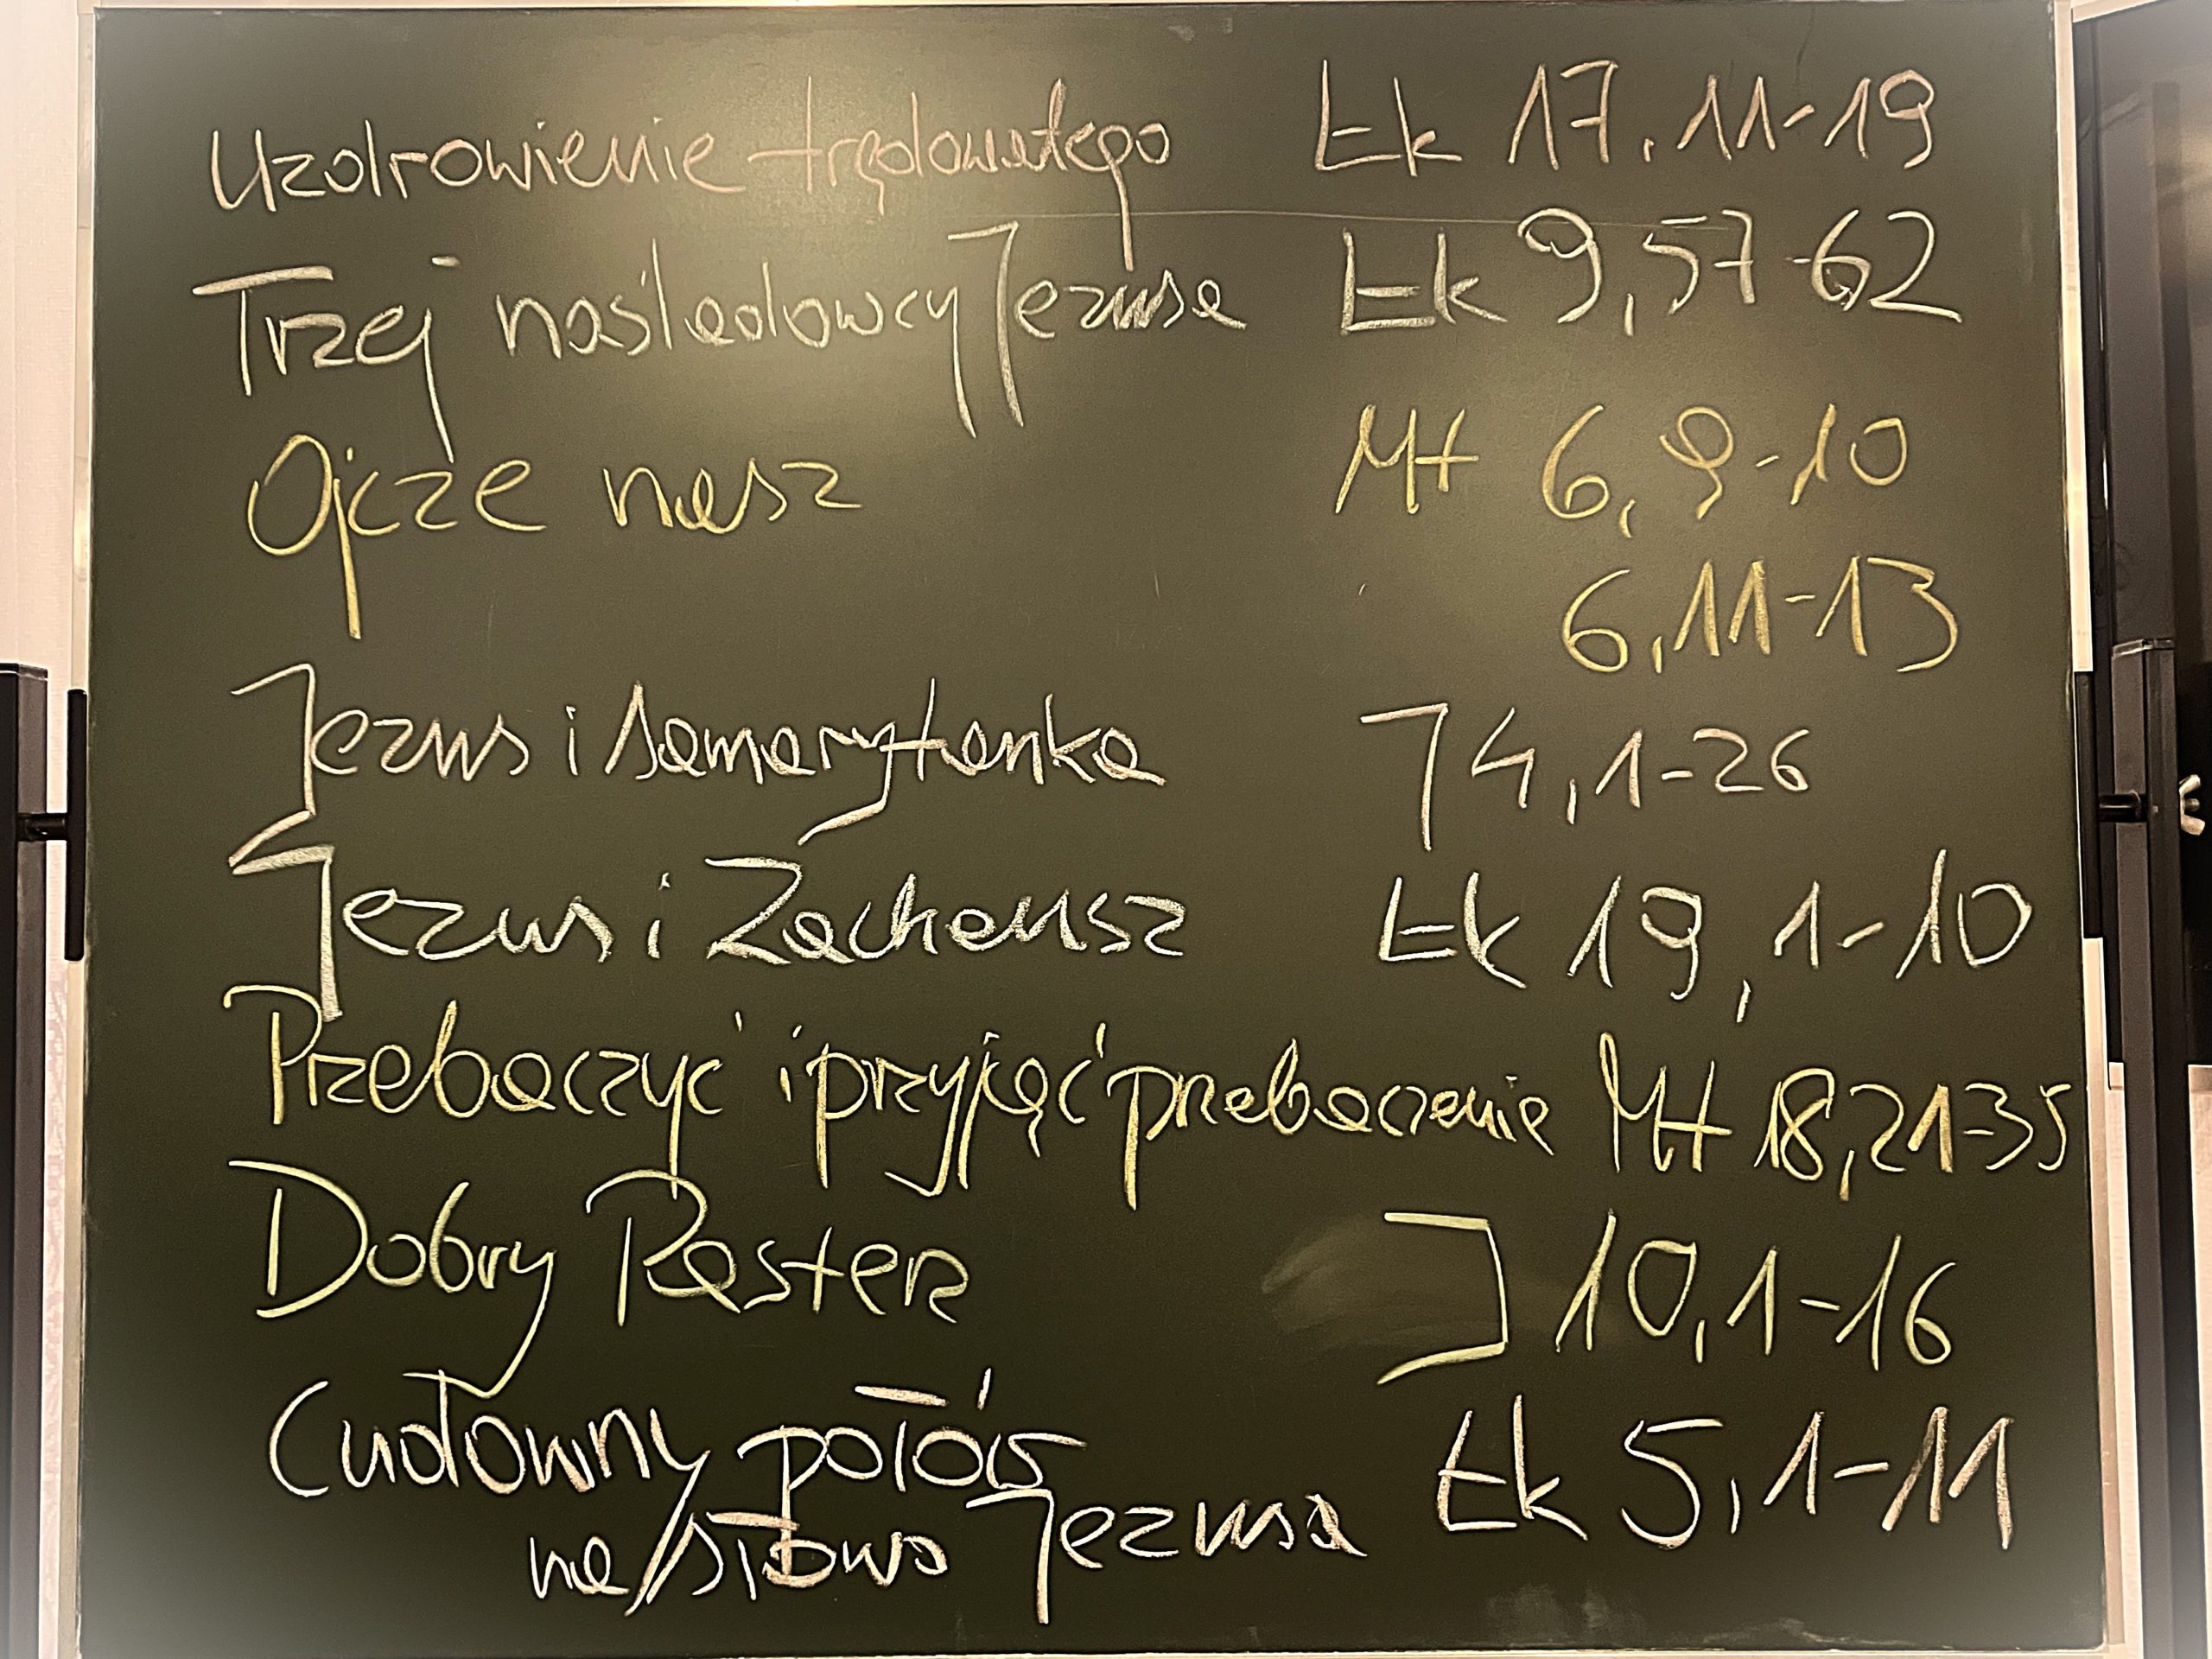 Uzdrowienie trędowatego Łk 17,11-19
Trzej naśladowcy Jezusa Łk 9,57-62
Ojcze nasz Mt 6,9-10
6,11-13
Jezus i Samarytanka J 4,1-26
Jezus i Zacheusz Łk 19,1-10
Przebaczyć i przyjąć przebaczenie Mt 18,21-35
Dobry Pasterz J 10,1-16
Cudowny połów Łk 5,1-11
na słowo Jezusa